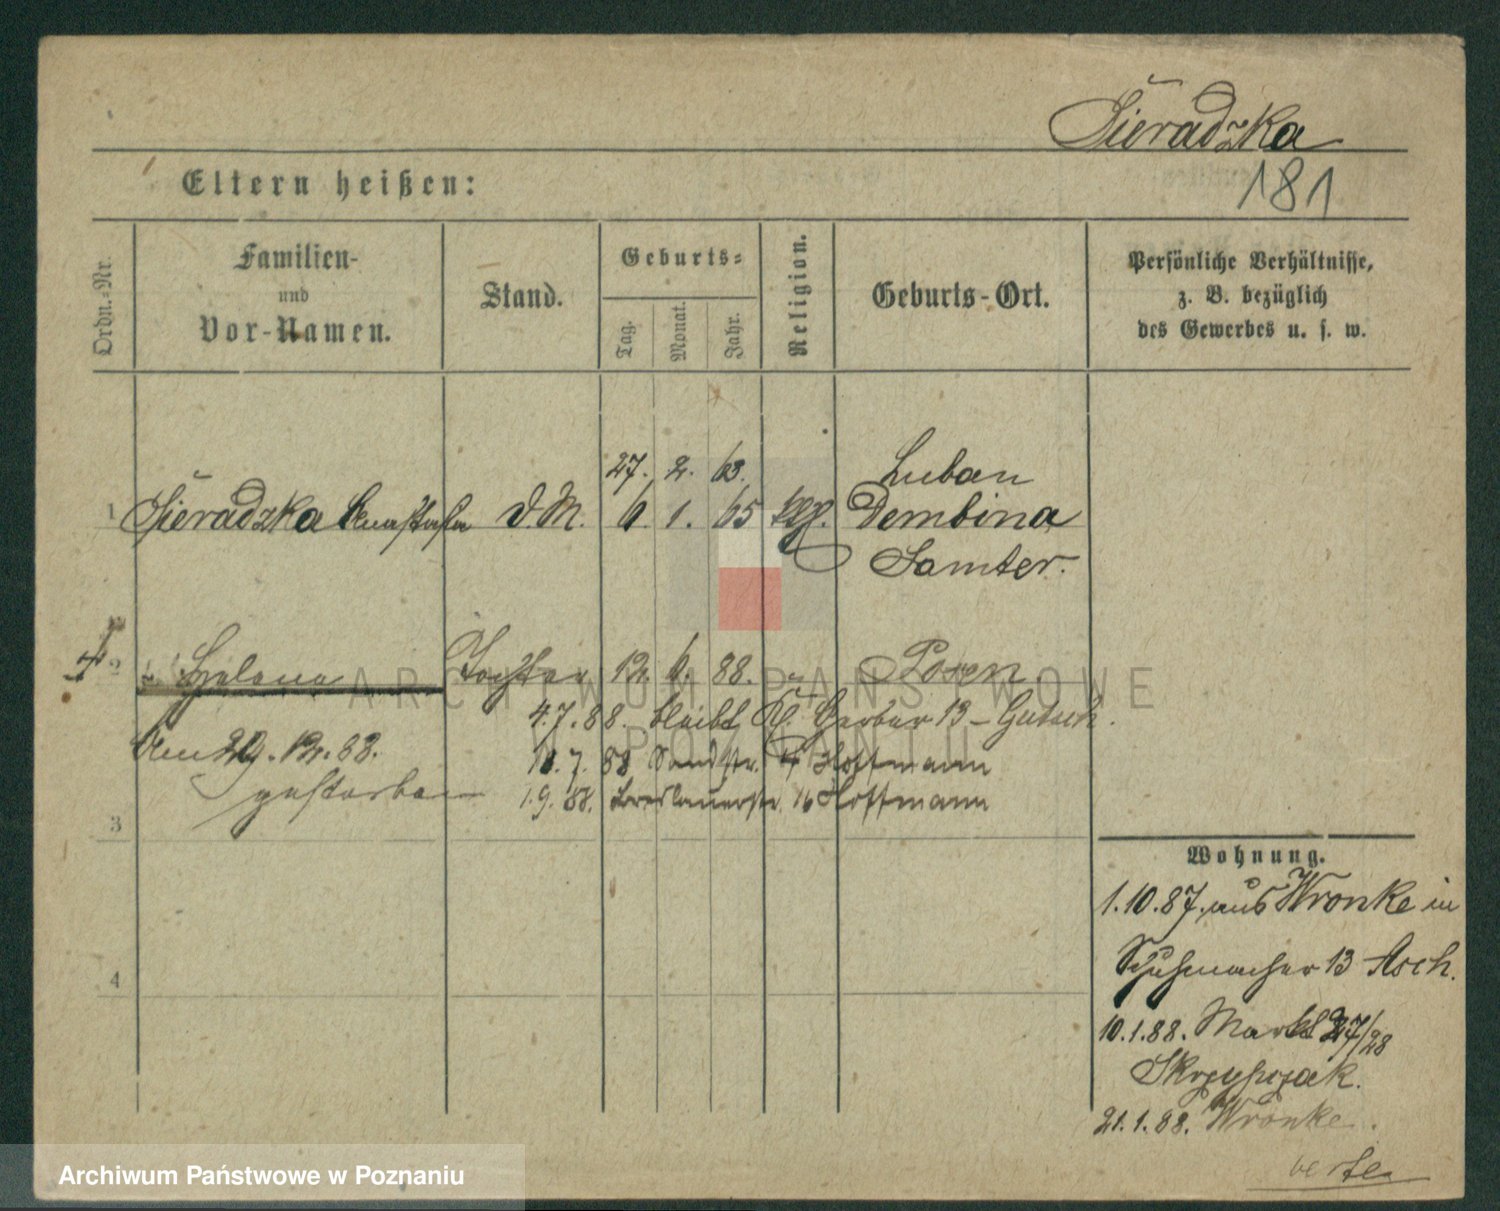 Sieradzka
181
Eltern heißen:
Ordn.-Nr.
Familien-
und
Vor-Namen.
Stand.
Geburts-
Tag.
Monat.
Jahr.
Religion.
Geburts-Ort.
Persönliche Verhältnisse,
z. B. bezüglich
des Gewerbes u. s. w.
27. 2. 63. Luban
1 Sieradzka Anastasia D.M. 6. 1. 65 Dembina
Samter.
2 Helena Tochter 12. 6. 88. Posen
4.7.88. bleibt Kl. Gerber 13 -
Am 29.12.88. 10.7.88 Sandstr. Hoffmann
gestorben 1.9.88. Breslauerstr. 16 Hoffmann
3
4
Wohnung.
1.10.87. aus Wronke in
Schuhmacher 13 Asch.
10.1.88. Markt 27/28
Skrzypczak.
21.1.88. Wronke.
verte
ARCHIWUM PAŃSTWOWE
POZNANIU
Archiwum Państwowe w Poznaniu